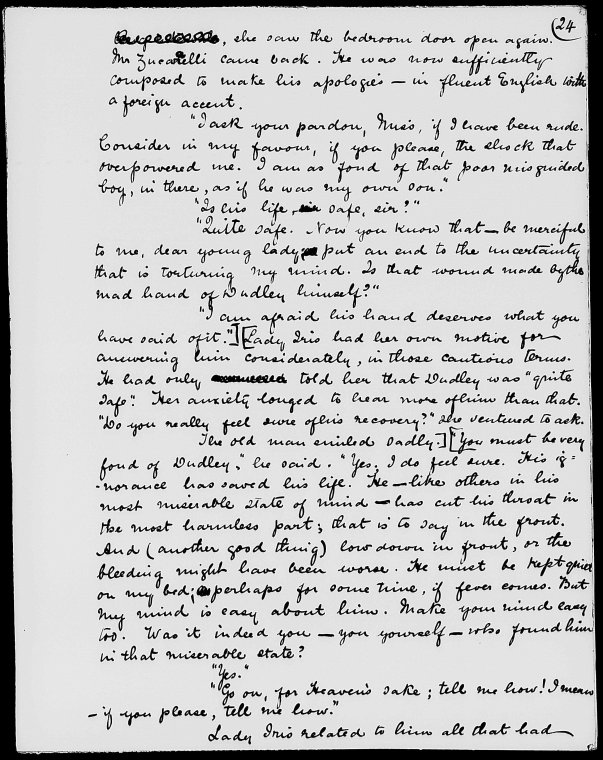 24
, she saw the bedroom door open again.
Mr Zucarelli came back. He was now sufficiently
composed to make his apologies — in fluent English with
a foreign accent.
"I ask your pardon, Miss, if I have been rude.
Consider in my favour, if you please, the shock that
overpowered me. I am as fond of that poor misguided
boy, in there, as if he was my own son."
"Is his life, safe, sir?"
"Quite safe. Now you know that — be merciful
to me, dear young lady put an end to the uncertainty
that is torturing my mind. Is that wound made by the
mad hand of Dudley himself?"
"I am afraid his hand deserves what you
have said of it."] [Lady Iris had her own motive for
answering him considerately, in those cautious terms.
He had only told her that Dudley was "quite
safe". Her anxiety longed to hear more of him than that.
"Do you really feel sure of his recovery?" she ventured to ask.
The old man smiled sadly.] ["You must be very
fond of Dudley," he said. "Yes; I do feel sure. His ig=
-norance has saved his life. He — like others in his
most miserable state of mind — has cut his throat in
the most harmless part; that is to say in the front.
And (another good thing) low down in front, or the
bleeding might have been worse. He must be kept quiet
on my bed; perhaps for some time, if fever comes. But
my mind is easy about him. Make your mind easy
too. Was it indeed you — you yourself — who found him
in that miserable state?
"Yes."
"Go on, for Heaven's sake; tell me how! I mean
— if you please, tell me how."
Lady Iris related to him all that had